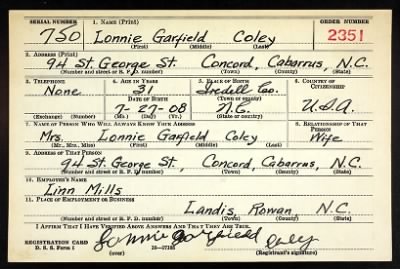 SERIAL NUMBER 1. NAME (Print) ORDER NUMBER
750 Lonnie Garfield Coley 2351
(First) (Middle) (Last)
2. ADDRESS (Print)
94 St. George St. Concord, Cabarrus, N.C.
(Number and street or R. F. D. number) (Town) (County) (State)
3. TELEPHONE 4. AGE IN YEARS 5. PLACE OF BIRTH 6. COUNTRY OF CITIZENSHIP
None 31 Iredell Co.
DATE OF BIRTH (Town or county)
7-27-08 N.C. U.S.A.
(Exchange) (Number) (Mo.) (Day) (Yr.) (State or country)
7. NAME OF PERSON WHO WILL ALWAYS KNOW YOUR ADDRESS 8. RELATIONSHIP OF THAT PERSON
Mrs. Lonnie Garfield Coley Wife
(Mr., Mrs., Miss) (First) (Middle) (Last)
9. ADDRESS OF THAT PERSON
94 St. George St, Concord, Cabarrus, N.C.
(Number and street or R. F. D. number) (Town) (County) (State)
10. EMPLOYER'S NAME
Linn Mills
11. PLACE OF EMPLOYMENT OR BUSINESS
Landis, Rowan, N.C.
(Number and street or R. F. D. number) (Town) (County) (State)
I AFFIRM THAT I HAVE VERIFIED ABOVE ANSWERS AND THAT THEY ARE TRUE.
REGISTRATION CARD Lonnie Garfield Coley
D. S. S. Form 1 (over) (Registrant's signature)